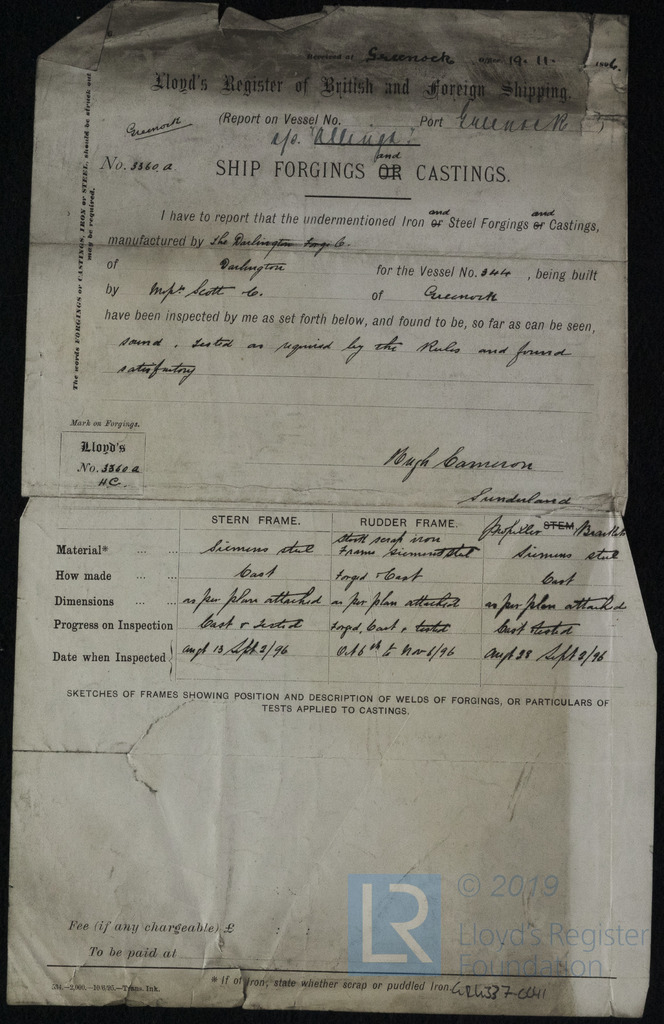 Received at Greenock 19. 11.
Lloyd's Register of British and Foreign Shipping.
Greenock
(Report on Vessel No. Port Greenock
s/s. "Allinga"
No. 3360 a
and
SHIP FORGINGS OR CASTINGS.
The words FORGINGS or CASTINGS, IRON or STEEL, should be struck out as may be required.
and and
I have to report that the undermentioned Iron or Steel Forgings or Castings,
manufactured by The Darlington Forge Co.
of Darlington for the Vessel No. 344, being built
by Messrs Scott & Co. of Greenock
have been inspected by me as set forth below, and found to be, so far as can be seen,
sound. Tested as required by the Rules and found
satisfactory
Mark on Forgings.
Lloyd's
No. 3360 a
H.C.
Hugh Cameron
Sunderland
STERN FRAME. RUDDER FRAME. Propeller STEM Brackets
Material* ... ... Siemens steel Stock scrap iron Frame Siemens steel Siemens steel
How made ... ... Cast Forged & Cast Cast
Dimensions ... ... as per plan attached as per plan attached as per plan attached
Progress on Inspection Cast & Tested Forged, Cast & tested Cast tested
Date when Inspected Augt 13 Sept 2/96 Oct 6th to Nov 6/96 Augt 28 Sept 2/96
SKETCHES OF FRAMES SHOWING POSITION AND DESCRIPTION OF WELDS OF FORGINGS, OR PARTICULARS OF
TESTS APPLIED TO CASTINGS.
Fee (if any chargeable) £ :
To be paid at
* If of Iron, state whether scrap or puddled Iron.
534.—2,000.—10/6/95.—Trans. Ink.
LR
© 2019
Lloyd's Register
Foundation